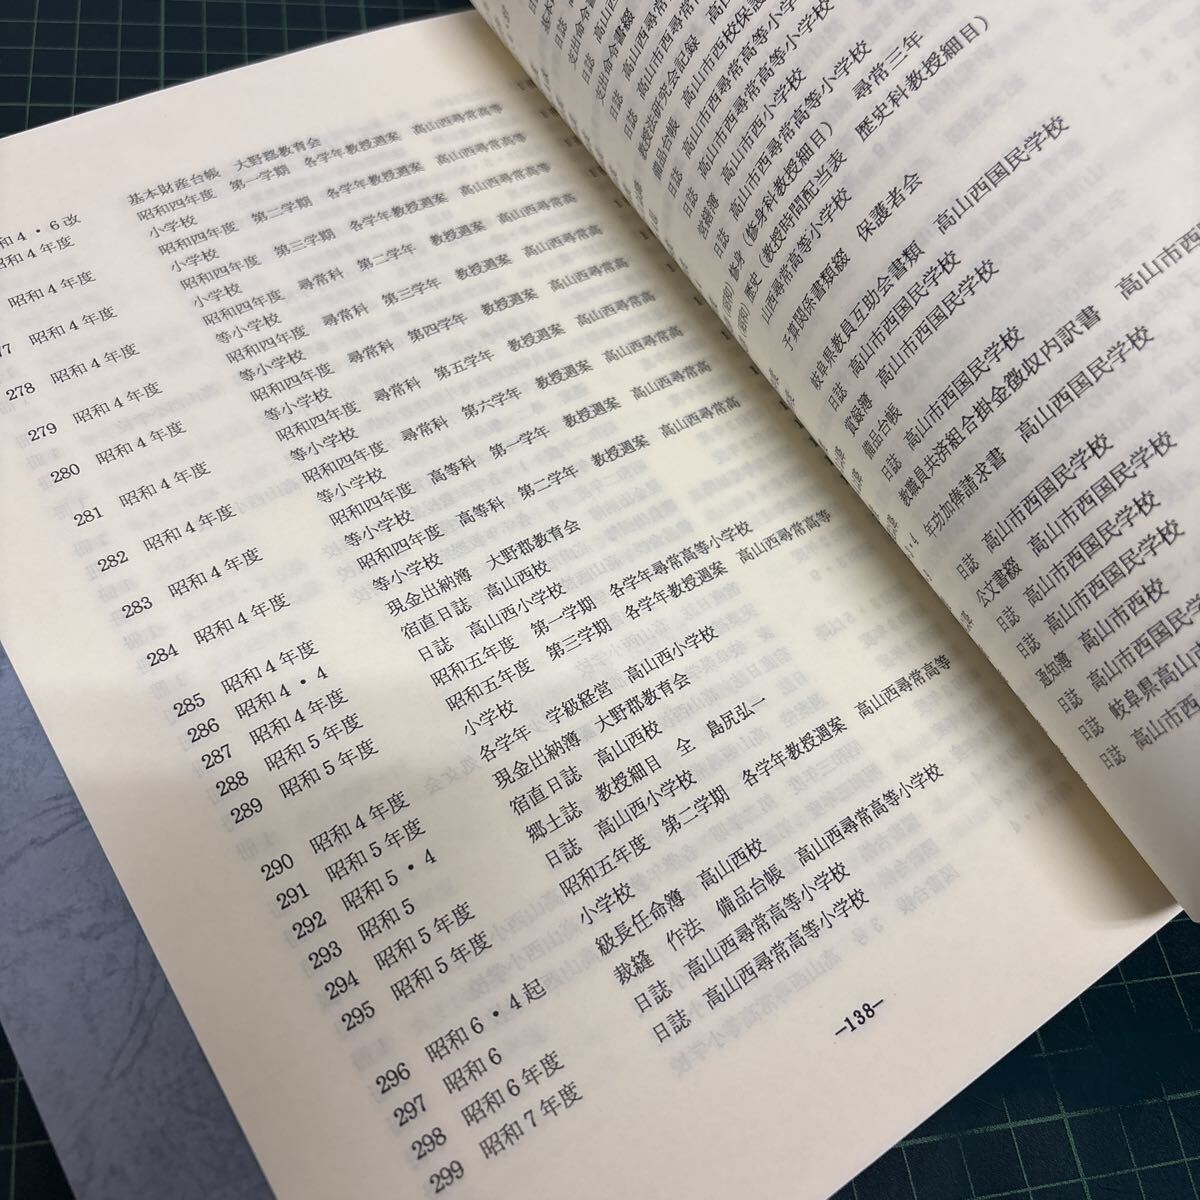 和4・6改 基本財産台帳 大野郡教育会
昭和4年度 昭和四年度 第一学期 各学年教授週案 高山西尋常高等
小学校
昭和4年度 昭和四年度 第二学期 各学年教授週案 高山西尋常高等
小学校
77 昭和4年度 昭和四年度 第三学期 各学年教授週案 高山西尋常高等
小学校
278 昭和4年度 昭和四年度 尋常科 第二学年 教授週案 高山西尋常高
等小学校
279 昭和4年度 昭和四年度 尋常科 第三学年 教授週案 高山西尋常高
等小学校
280 昭和4年度 昭和四年度 尋常科 第四学年 教授週案 高山西尋常高
等小学校
281 昭和4年度 昭和四年度 尋常科 第五学年 教授週案 高山西尋常高
等小学校
282 昭和4年度 昭和四年度 尋常科 第六学年 教授週案 高山西尋常高
等小学校
283 昭和4年度 昭和四年度 高等科 第一学年 教授週案 高山西尋常高
等小学校
284 昭和4年度 昭和四年度 高等科 第二学年 教授週案 高山西尋常高
等小学校
285 昭和4年度 現金出納簿 大野郡教育会
286 昭和4・4 宿直日誌 高山西校
287 昭和4年度 日誌 高山西小学校
288 昭和5年度 昭和五年度 第一学期 各学年尋常高等小学校
289 昭和5年度 昭和五年度 第三学期 各学年教授週案 高山西尋常高等
小学校
290 昭和4年度 各学年 学級経営 高山西小学校
291 昭和5年度 現金出納簿 大野郡教育会
292 昭和5・4 宿直日誌 高山西校
293 昭和5 郷土誌 教授細目 全 島尻弘一
294 昭和5年度 日誌 高山西小学校
295 昭和5年度 昭和五年度 第二学期 各学年教授週案 高山西尋常高等
小学校
296 昭和6・4起 級長任命簿 高山西校
297 昭和6 裁縫 作法 備品台帳 高山西尋常高等小学校
298 昭和6年度 日誌 高山西尋常高等小学校
299 昭和7年度 日誌 高山西尋常高等小学校
—138—
教授法研究会記録 高山市西校保護
備品台帳 高山市西尋常高等小学校
日誌 高山市西小学校
日誌 高山市西尋常高等小学校
修身（修身科教授細目） 尋常三年
歴史（教授時間配当表 歴史科教授細目）
山西尋常高等小学校
予算関係書類綴 保護者会
岐阜県教員互助会書類 高山西国民学校
日誌 高山市西国民学校
備品台帳 高山市西国民学校
日誌 高山市西国民学校
教職員共済組合掛金徴収内訳書 高山市西国
年功加俸請求書 高山西国民学校
日誌 高山市西国民学校
公文書綴 高山市西国民学校
日誌 高山市西国民学校
日誌 高山市西国民学校
通知簿 高山市西校
日誌 高山市西国民学
日誌 岐阜県高山
日誌 高山市西